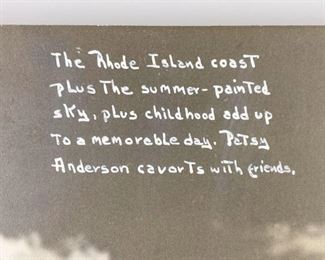 The Rhode Island coast
plus The summer-painted
sky, plus childhood add up
To a memorable day. Patsy
Anderson cavorts with friends.